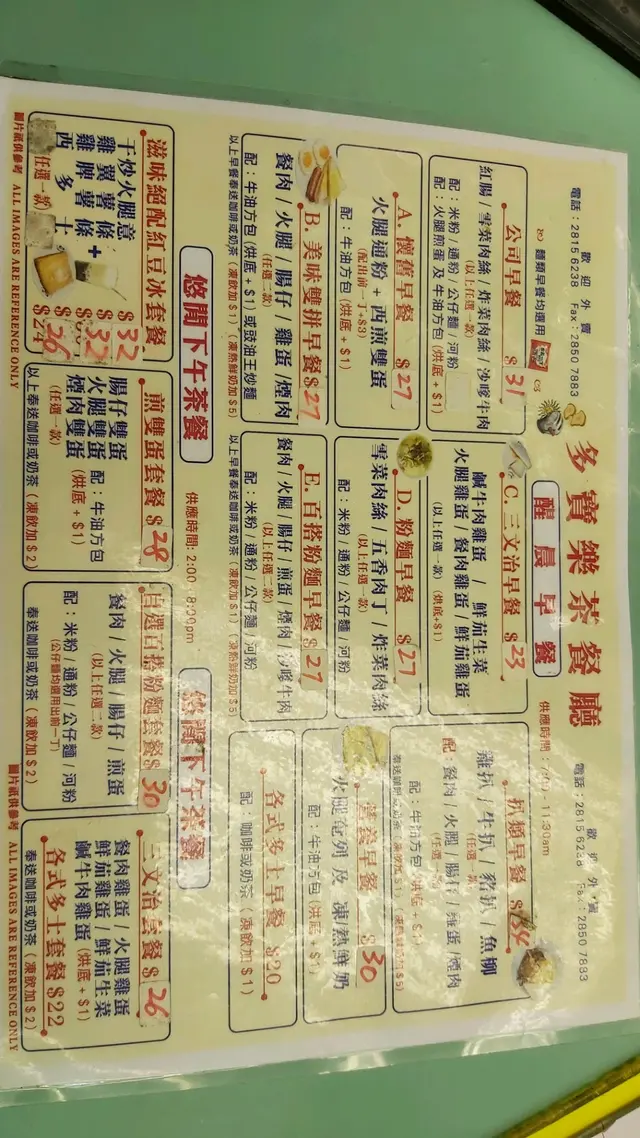 多寶樂茶餐廳
歡迎外賣
電話：2815 6238 Fax：2850 7883
麵類早餐均選用
醒晨早餐
供應時間：7:00 - 11:30am
歡迎外賣
電話：2815 6238 Fax：2850 7883
公司早餐 $31
紅腸 / 雪菜肉絲 / 炸菜肉絲 / 沙嗲牛肉
(以上任選一款)
配：米粉 / 通粉 / 公仔麵 / 河粉
配：火腿煎蛋 及 牛油方包 (烘底 + $1)
C. 三文治早餐 $23
鹹牛肉雞蛋 / 鮮茄生菜
火腿雞蛋 / 餐肉雞蛋 / 鮮茄雞蛋
(以上任選一款) (烘底+$1)
扒類早餐 $34
雞扒 / 牛扒 / 豬扒 / 魚柳
(任選一款)
配：餐肉 / 火腿 / 腸仔 / 雞蛋 / 煙肉
(任選一款)
配：牛油方包 (烘底 + $1)
奉送咖啡或奶茶 (凍飲加 $1) (凍熱鮮奶加 $5)
A. 懷舊早餐 $27
火腿通粉 + 西煎雙蛋
(配出前一丁+$3)
配：牛油方包 (烘底 + $1)
D. 粉麵早餐 $27
雪菜肉絲 / 五香肉丁 / 炸菜肉絲
(以上任選一款)
配：米粉 / 通粉 / 公仔麵 / 河粉
營養早餐 $30
火腿奄列 及 凍熱鮮奶
配：牛油方包 (烘底 + $1)
B. 美味雙拼早餐 $27
餐肉 / 火腿 / 腸仔 / 雞蛋 / 煙肉
(任選二款)
配：牛油方包 (烘底 + $1) 或豉油王炒麵
以上早餐奉送咖啡或奶茶 (凍飲加 $1) (凍熱鮮奶加 $5)
E. 百搭粉麵早餐 $27
餐肉 / 火腿 / 腸仔 / 煎蛋 / 煙肉 / 沙嗲牛肉
(以上任選二款)
配：米粉 / 通粉 / 公仔麵 / 河粉
以上早餐奉送咖啡或奶茶 (凍飲加 $1) (凍熱鮮奶加 $5
各式多士早餐 $20
配：咖啡或奶茶 (凍飲加 $1)
悠閒下午茶餐
供應時間：2:00 - 6:00pm
悠閒下午茶餐
滋味絕配紅豆冰套餐
干炒火腿意 $32
雞翼薯條 + $32
雞脾薯條
西多士 $24 26
(任選一款)
煎雙蛋套餐 $28
腸仔雙蛋
火腿雙蛋
煙肉雙蛋
配：牛油方包
(烘底 + $1)
(任選一款)
以上奉送咖啡或奶茶 (凍飲加 $2)
自選百搭粉麵套餐 $30
餐肉 / 火腿 / 腸仔 / 煎蛋
(以上任選二款)
配：米粉 / 通粉 / 公仔麵 / 河粉
(公仔麵均選用出前一丁)
奉送咖啡或奶茶 (凍飲加 $2)
三文治套餐 $26
餐肉雞蛋 / 火腿雞蛋
鮮茄雞蛋 / 鮮茄生菜
鹹牛肉雞蛋 (烘底 + $1)
各式多士套餐 $22
奉送咖啡或奶茶 (凍飲加 $2)
圖片祇供參考 ALL IMAGES ARE REFERENCE ONLY
圖片祇供參考 ALL IMAGES ARE REFERENCE ONLY